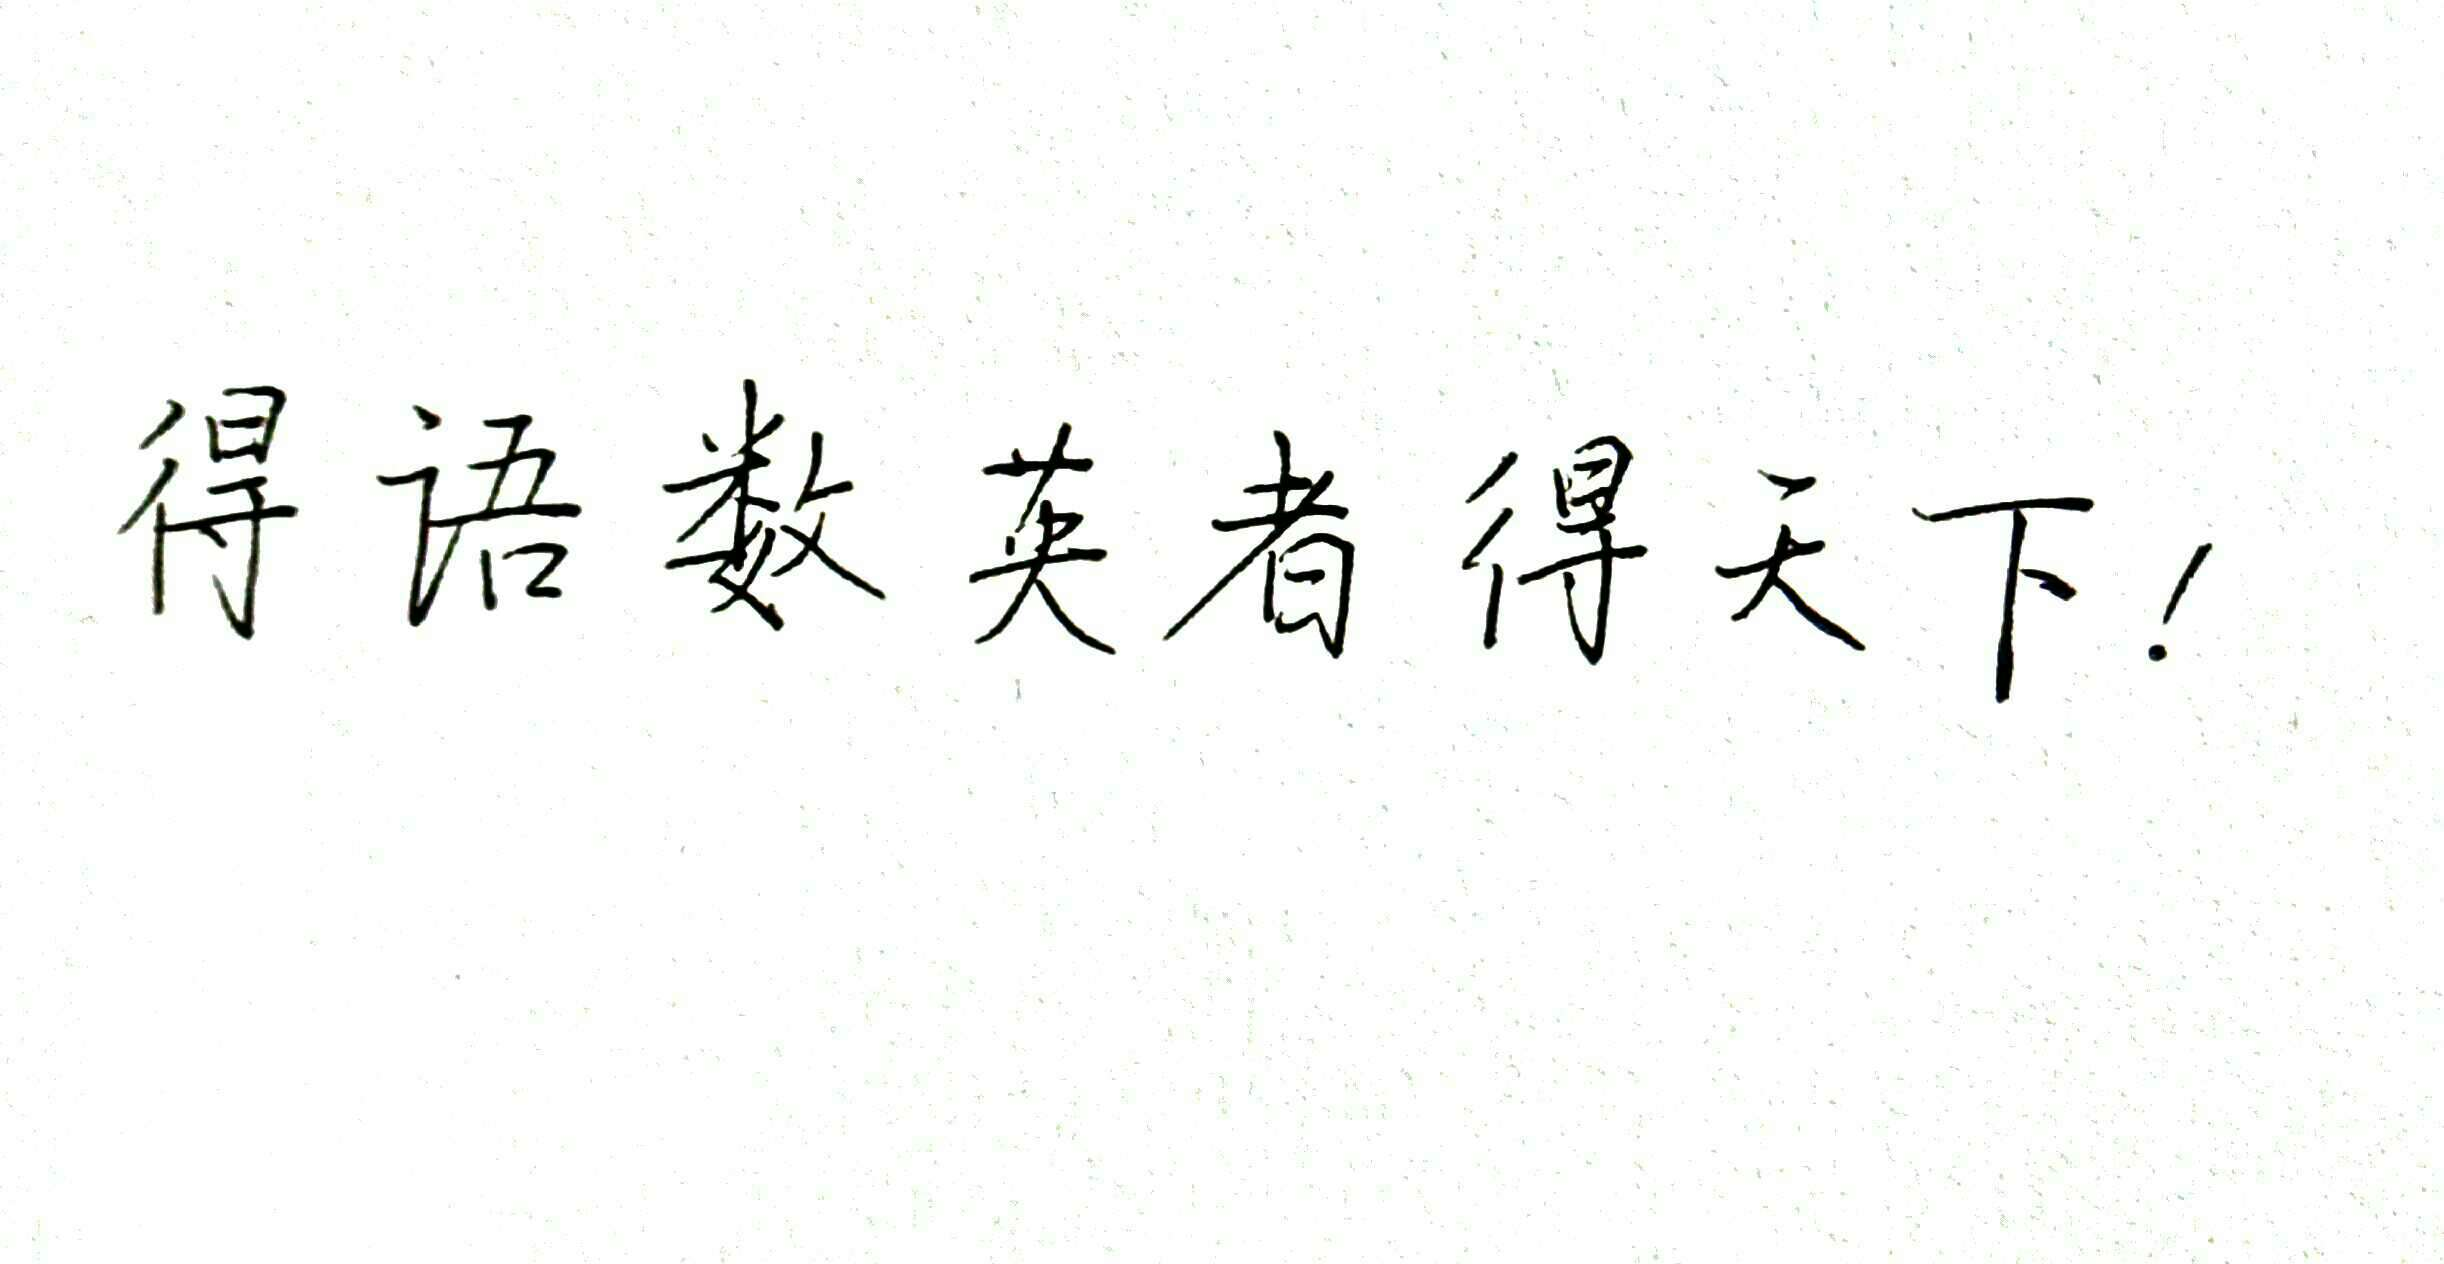 得语数英者得天下!